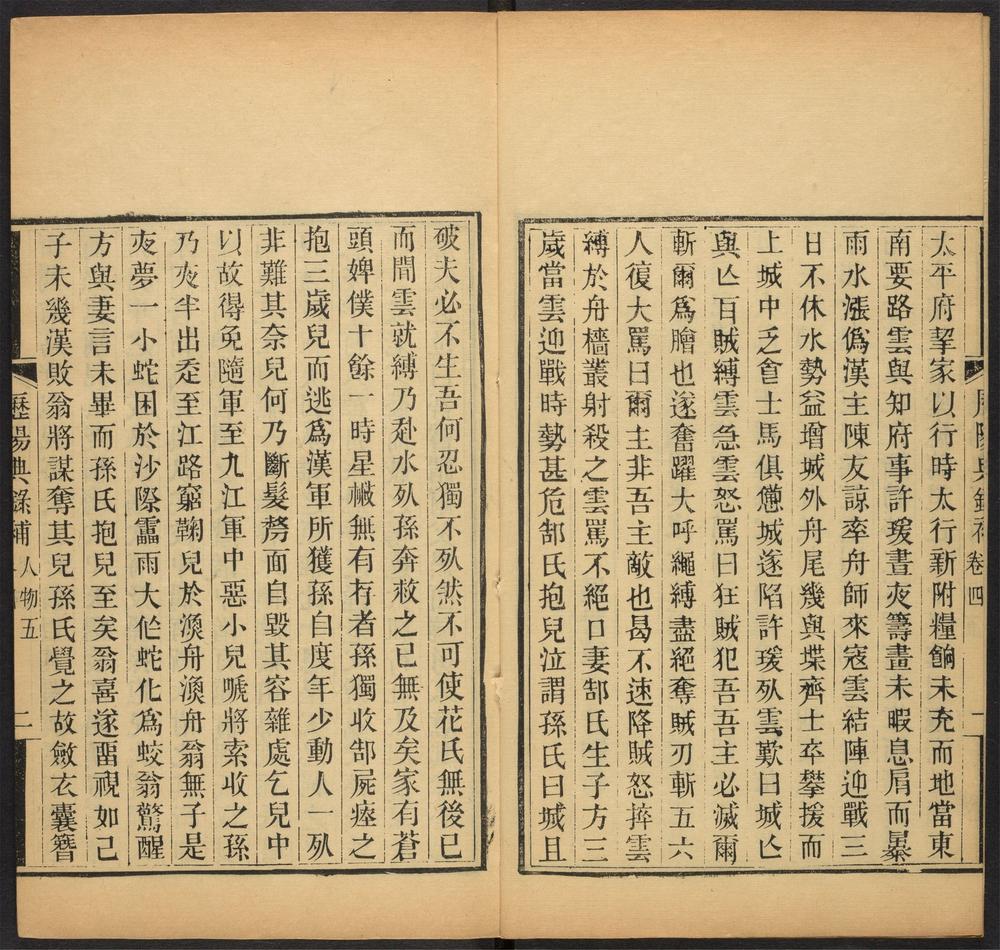 太平府挈家以行時太行新附糧餉未充而地當東
南要路雲與知府事許瑗晝夾籌畫未暇息肩而暴
雨水漲僞漢主陳友諒率舟師來宼雲結陣迎戰三
日不休水勢益增城外舟尾幾與堞齊士卒攀援而
上城中乏食士馬俱憊城遂陷許瑗死雲歎曰城亾
與亾百賊縛雲急雲怒罵曰狂賊犯吾吾主必滅爾
斬爾爲膾也遂奮躍大呼繩縛盡絕奪賊刃斬五六
人復大罵曰爾主非吾主敵也曷不速降賊怒捽雲
縛於舟檣叢射殺之雲罵不絕口妻郜氏生子方三
歲當雲迎戰時勢甚危郜氏抱兒泣謂孫氏曰城且
破夫必不生吾何忍獨不死然不可使花氏無後已
而聞雲就縛乃赴水死孫奔救之已無及矣家有蒼
頭婢僕十餘一時星㪚無有存者孫獨收郜屍瘞之
抱三歲兒而逃爲漢軍所獲孫自度年少動人一死
非難其奈兒何乃斷髮剺面自毀其容雜處乞兒中
以故得免隨軍至九江軍中惡小兒嗁將索收之孫
乃夾半出走至江路窮鞠兒於漁舟漁舟翁無子是
夾夢一小蛇困於沙際霝雨大作蛇化爲蛟翁驚醒
方與妻言未畢而孫氏抱兒至矣翁喜遂畱視如己
子未幾漢敗翁將謀奪其兒孫氏覺之故斂衣囊簪
歷陽典錄補 人物五 二